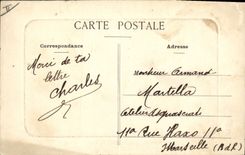 CARTE POSTALE
Correspondance
Adresse
Merci de ta
lettre
Charles
Monsieur Armand
Martella
11a Rue Haxo 11a
Marseille (B.d.R)